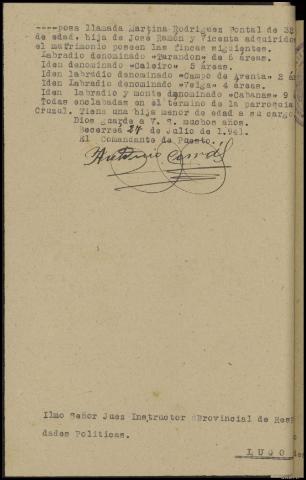 ----posa llamada Martina Rodriguez Pontal de 32
de edad, hija de José Ramón y Vicenta adquiridos
el matrimonio poseen las fincas siguientes.
Labradio denominado "Tarandon" de 6 áreas.
Iden denominado "Caleiro" 5 áreas.
Iden labradio denominado "Campo de Aventa. 2 ár
Iden Labradio denominado "Veiga" 4 áreas.
Iden labradio y monte denominado "Cabanas" 9
Todas enclabadas en el término de la parroquia
Cruzul. Tiene una hija menor de edad a su cargo
Dios guarde a V. S. muchos años.
Becerreá 27 de Julio de 1.941.
El Comandante de Puesto.
Antonio
Ilmo Señor Juez Instructor Provincial de Res
dades Politicas.
LUGO